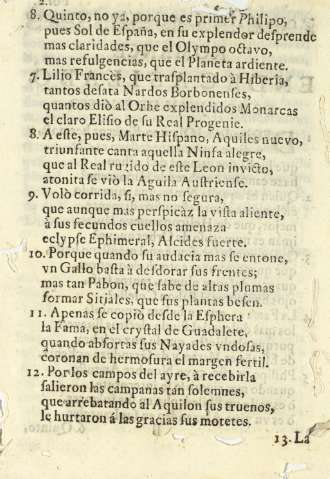 8. Quinto, no ya, porque es primer Philipo,
pues Sol de España, en su explendor desprende
mas claridades, que el Olympo octavo,
mas refulgencias, que el Planeta ardiente.
7. Lilio Francès, que trasplantado à Hiberia,
tantos desata Nardos Borbonenses,
quantos diò al Orbe explendidos Monarcas
el claro Elisio de su Real Progenie.
8. A este, pues, Marte Hispano, Aquiles nuevo,
triunfante canta aquella Ninfa alegre,
que al Real rugido de este Leon invicto,
atonita se viò la Aguila Austriense.
9. Volò corrida, si, mas no segura,
que aunque mas perspicàz la vista aliente,
à sus fecundos cuellos amenaza
eclypse Ephimeral, Alcides fuerte.
10. Porque quando su audacia mas se entone,
vn Gallo basta à desdorar sus frentes;
mas tan Pabon, que sabe de altas plumas
formar Sitiales, que sus plantas besen.
11. Apenas se copiò desde la Esphera
la Fama, en el crystal de Guadalete,
quando absortas sus Nayades vndosas,
coronan de hermosura el margen fertil.
12. Por los campos del ayre, à recebirla
salieron las campanas tan solemnes,
que arrebatando al Aquilon sus truenos,
le hurtaron á las gracias sus motetes.
13. La